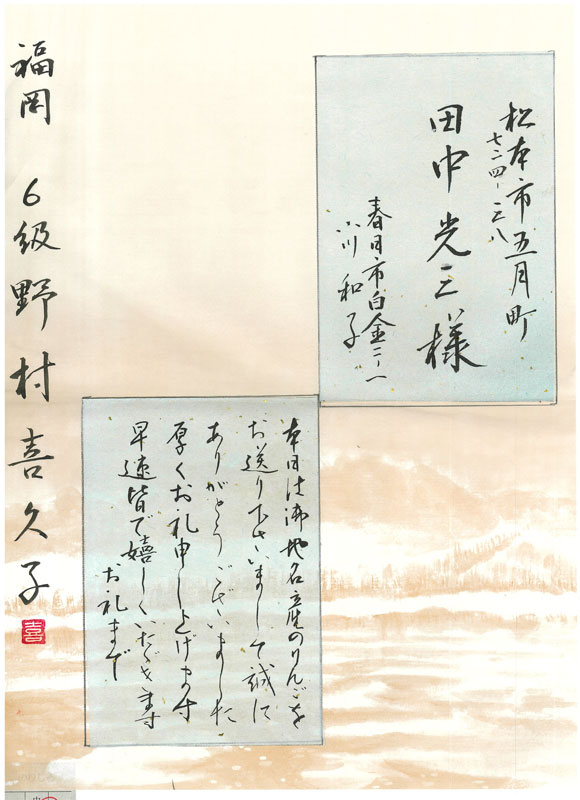 松本市五月町
七二四-三八
田中光三様
春日市白金二-一
小川和子
本日は御地名産のりんごを
お送り下さいまして誠に
ありがとうございました
厚くお礼申し上げます
早速皆で嬉しくいただきます
お礼まで
福岡 6級 野村喜久子
喜